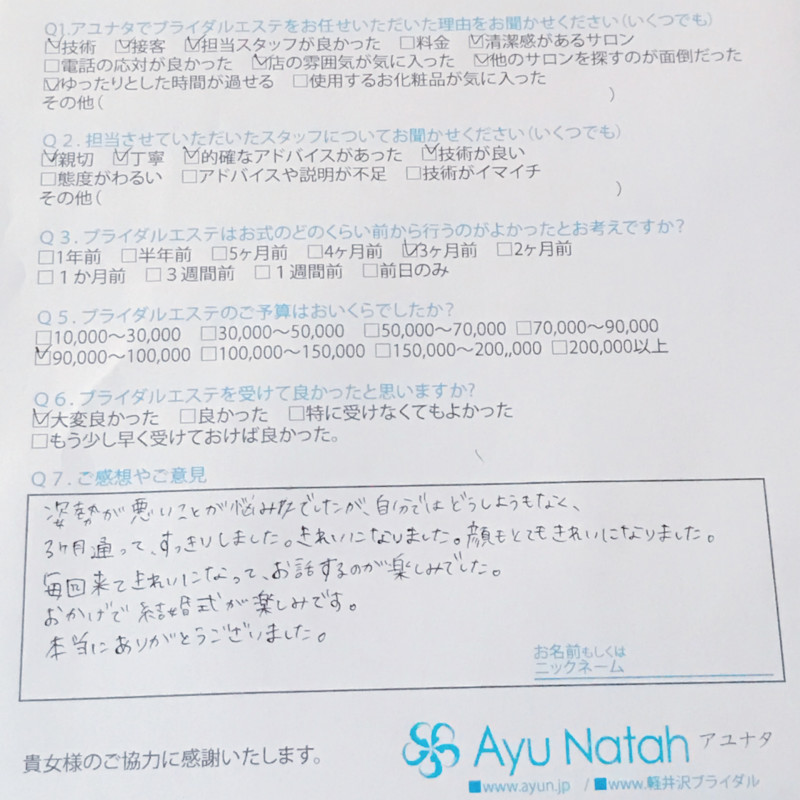 Q1.アユナタでブライダルエステをお任せいただいた理由をお聞かせください(いくつでも)
☑技術 ☑接客 ☑担当スタッフが良かった □料金 ☑清潔感があるサロン
□電話の応対が良かった ☑店の雰囲気が気に入った ☑他のサロンを探すのが面倒だった
☑ゆったりとした時間が過せる □使用するお化粧品が気に入った
その他( )
Q2.担当させていただいたスタッフについてお聞かせください(いくつでも)
☑親切 ☑丁寧 ☑的確なアドバイスがあった ☑技術が良い
□態度がわるい □アドバイスや説明が不足 □技術がイマイチ
その他( )
Q3.ブライダルエステはお式のどのくらい前から行うのがよかったとお考えですか?
□1年前 □半年前 □5ヶ月前 □4ヶ月前 ☑3ヶ月前 □2ヶ月前
□1か月前 □3週間前 □1週間前 □前日のみ
Q5.ブライダルエステのご予算はおいくらでしたか?
□10,000〜30,000 □30,000〜50,000 □50,000〜70,000 □70,000〜90,000
☑90,000〜100,000 □100,000〜150,000 □150,000〜200,,000 □200,000以上
Q6.ブライダルエステを受けて良かったと思いますか?
☑大変良かった □良かった □特に受けなくてもよかった
□もう少し早く受けておけば良かった。
Q7.ご感想やご意見
姿勢が悪いことが悩みでしたが、自分ではどうしようもなく、
3ヶ月通って、すっきりしました。きれいになりました。顔もとてもきれいになりました。
毎回来てきれいになって、お話するのが楽しみでした。
おかげで結婚式が楽しみです。
本当にありがとうございました。
お名前もしくは
ニックネーム
貴女様のご協力に感謝いたします。
Ayu Natah アユナタ
■www.ayun.jp /■www.軽井沢ブライダル